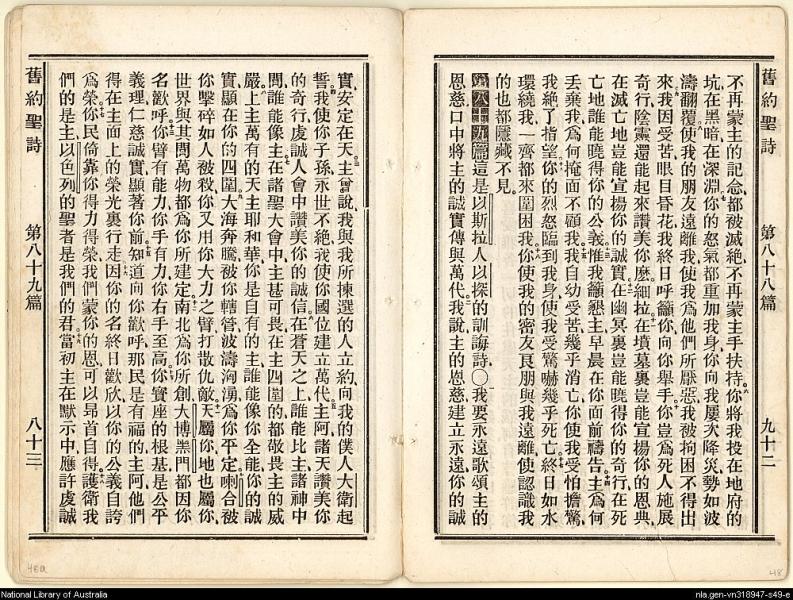 舊約聖詩 第八十八篇 九十二
不再蒙主的記念都被滅絶不再蒙主手扶持你將我投在地府的
坑在黑暗在深淵你的怒氣都重加我身你向我屢次降災勢如波
濤翻覆使我的朋友遠離我使我爲他們所厭惡我被拘困不得出
來我因受苦眼目昏花我終日呼籲你向你舉手你豈爲死人施展
奇行陰靈還能起來讚美你麽細拉在墳墓裏豈能宣揚你的恩典
在滅亡地豈能宣揚你的誠實在幽冥裏豈能曉得你的奇行在死
亡地誰能曉得你的公義惟我籲懇主早晨在你面前禱告主爲何
丟棄我爲何掩面不顧我我自幼受苦幾乎消亡你使我受怕擔驚
我絶了指望你的烈怒臨到我身使我受驚嚇幾乎死亡終日如水
環繞我一齊都來圍困我你使我的密友良朋與我遠離使認識我
的也都隱藏不見
第八十九篇這是以斯拉人以探的訓誨詩〇我要永遠歌頌主的
恩慈口中將主的誠實傳與萬代我說主的恩慈建立永遠你的誠
實安定在天主曾說我與我所揀選的人立約向我的僕人大衛起
誓我使你子孫永世不絶我使你國位建立萬代主阿諸天讚美你
的奇行虔誠人會中讚美你的誠信在蒼天之上誰能比主諸神中
間誰能像主在諸聖大會中主甚可畏在主四圍的都敬畏主的威
嚴上主萬有的天主耶和華你是自有的主誰能像你全能你的誠
實顯在你的四圍大海奔騰被你轄管波濤洶湧爲你平定喇合被
你擊碎如人被殺你又用你大力之臂打散仇敵天屬你地也屬你
世界與其間萬物都爲你所建定南北爲你所創大博黑門都因你
名歡呼你臂有能力你手有力你右手至高你寶座的根基是公平
義理仁慈誠實顯著你前知道向你歡呼那民是有福的主阿他們
得在主面上的榮光裏行走因你的名終日歡欣以你的公義自誇
爲榮你民倚靠你得力得榮我們蒙你的恩可以昂首自得護衛我
們的是主以色列的聖者是我們的君當初主在默示中應許虔誠
舊約聖詩 第八十九篇 八十三
48a
48
National Library of Australia
nla.gen-vn318947-s49-e